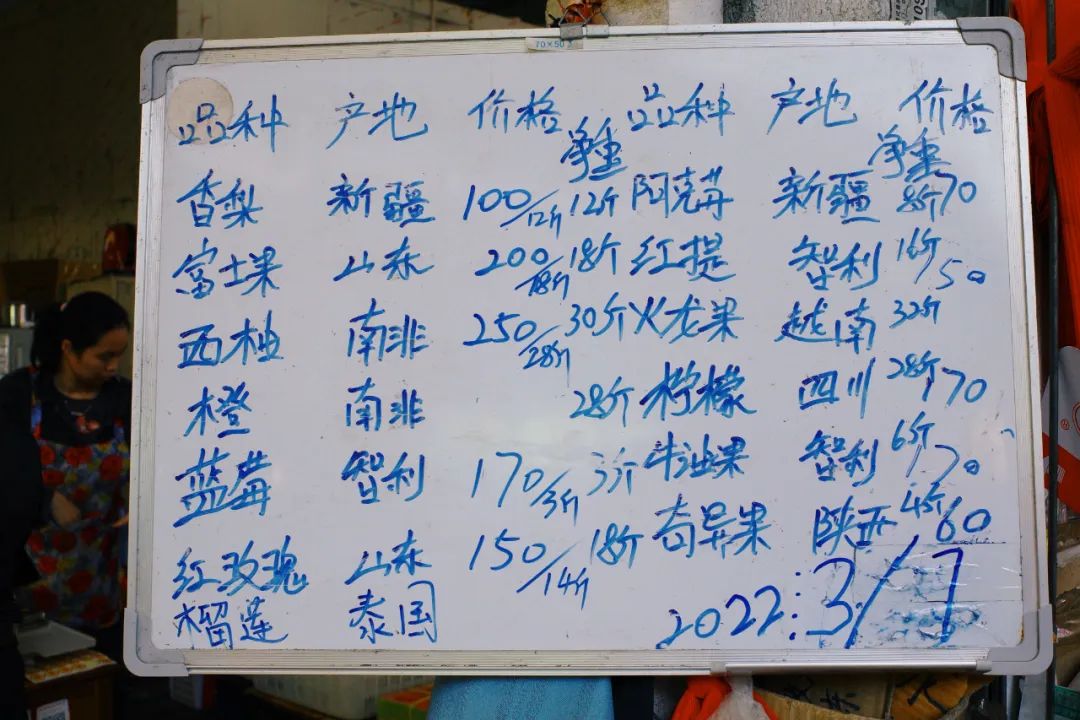 70×50
品种 产地 价格 净重 品种 产地 价格 净重
香梨 新疆 100/12斤 12斤 阿克苏 新疆 8斤 70
富士果 山东 200/18斤 18斤 红提 智利 16斤/50
西柚 南非 250/28斤 30斤 火龙果 越南 32斤
橙 南非 28斤 柠檬 四川 28斤/170
蓝莓 智利 170/3斤 3斤 牛油果 智利 6斤/70
红玫瑰 山东 150/14斤 18斤 奇异果 陕西 4斤/60
榴莲 泰国 2022:3/7